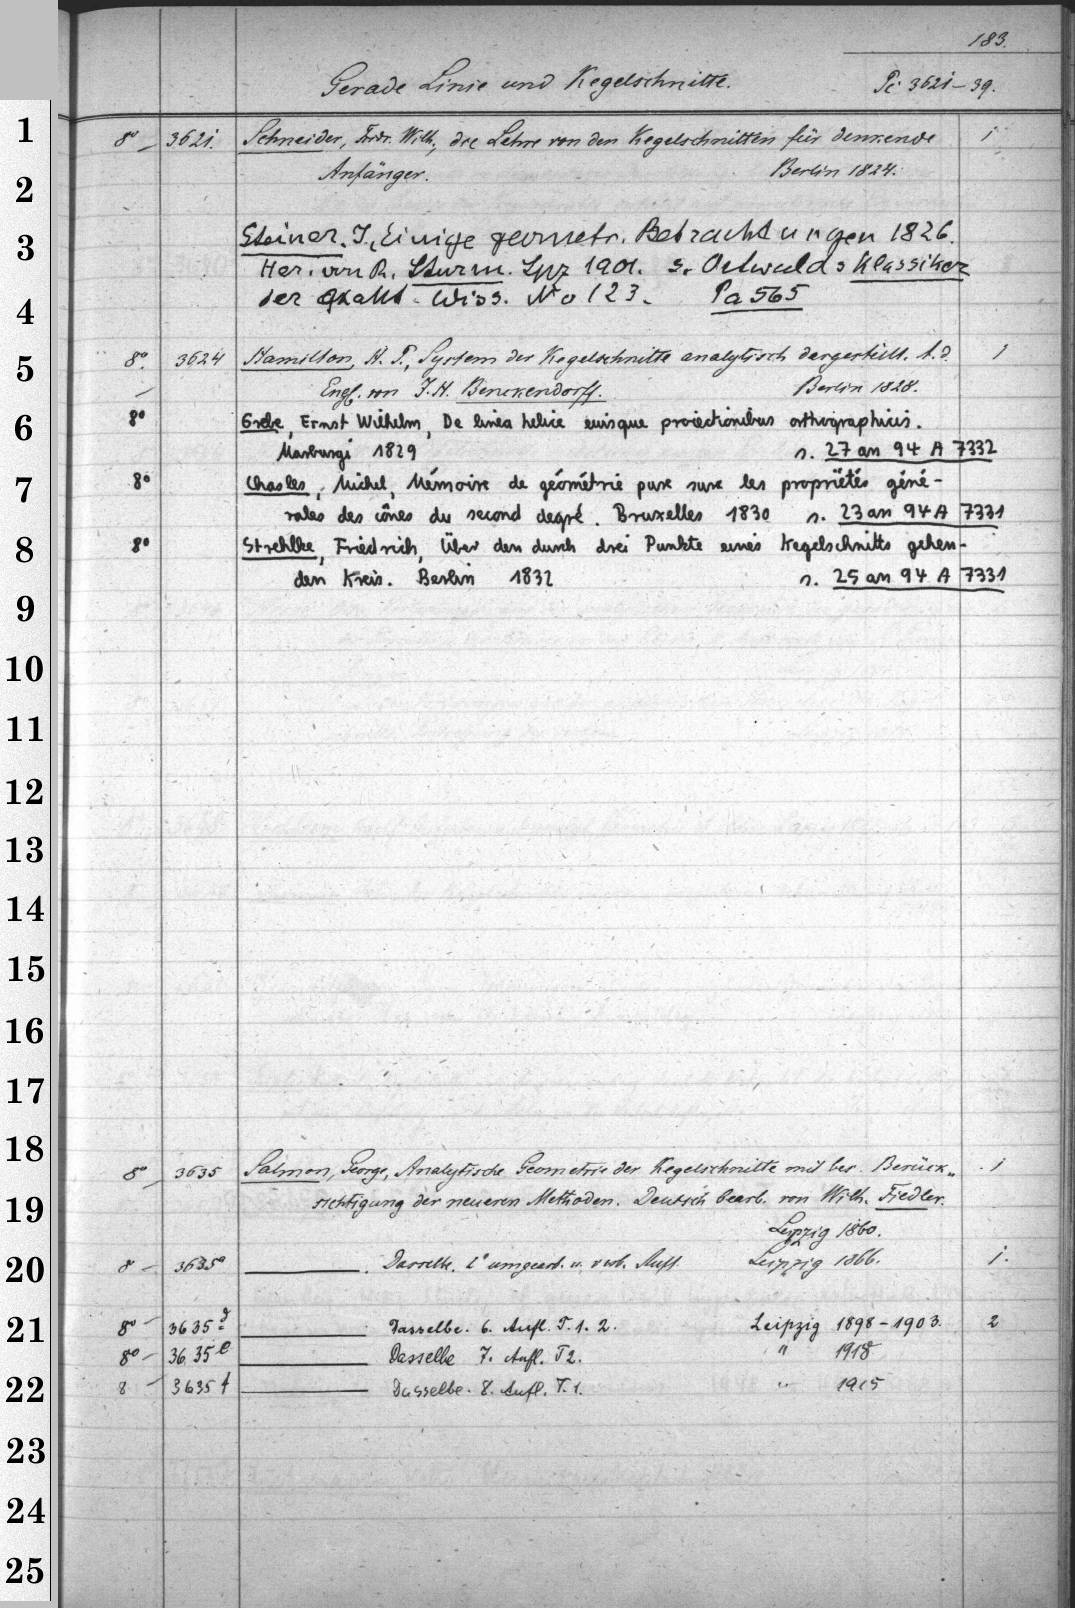 183.
Gerade Linie und Kegelschnitte. Pc 3621-39.
1 8° 3621. Schneider, Frdr. Wilh., die Lehre von den Kegelschnitten für denkende 1
2 Anfänger. Berlin 1824.
3 Steiner, J., Einige geometr. Betrachtungen 1826.
Her. von R. Sturm. Lpz 1901. s. Ostwalds Klassiker
4 der exakt. Wiss. No 123. Pa 565
5 8°. 3624 Hamilton, H. P., System der Kegelschnitte analytisch dargestellt. A. d. 1
Engl. von J. H. Benckendorff. Berlin 1828.
6 8° Grebe, Ernst Wilhelm, De linea helice eiusque proiectionibus orthographicis.
Marburgi 1829 s. 27 an 94 A 7332
7 8° Chasles, Michel, Mémoire de géométrie pure sure les propriétés géné-
rales des cônes du second degré. Bruxelles 1830 s. 23 an 94 A 7331
8 8° Strehlke, Friedrich, Über den durch drei Punkte eines Kegelschnitts gehen-
den Kreis. Berlin 1832 s. 25 an 94 A 7331
9
10
11
12
13
14
15
16
17
18 8° 3635 Salmon, George, Analytische Geometrie der Kegelschnitte mit bes. Berück„ 1
19 sichtigung der neueren Methoden. Deutsch bearb. von Wilh. Fiedler.
Leipzig 1860.
20 8 3635a Dasselbe. 2e umgearb. u. verb. Aufl. Leipzig 1866. 1.
21 8° 3635d Dasselbe. 6. Aufl. T. 1. 2. Leipzig 1898-1903. 2
8° 3635e Dasselbe 7. Aufl. T 2. " 1918
22 8 3635f Dasselbe. 8. Aufl. T. 1. " 1915
23
24
25